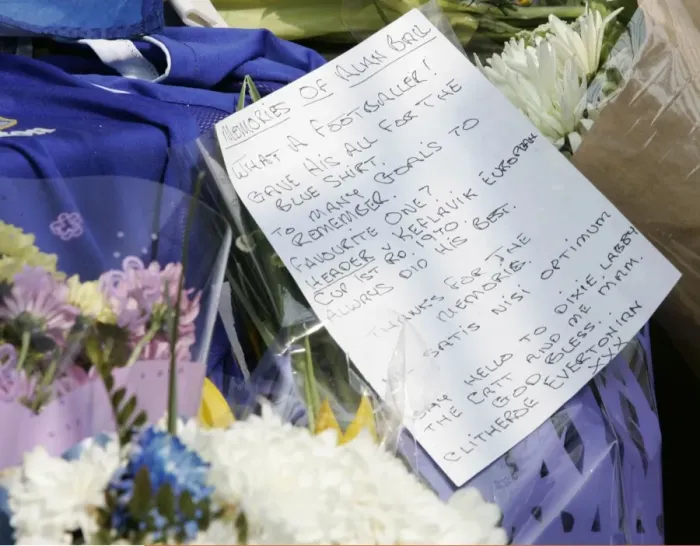 MEMORIES OF ALAN BALL
WHAT A FOOTBALLER!
GAVE HIS ALL FOR THE
BLUE SHIRT.
TO MANY GOALS TO
REMEMBER.
FAVOURITE ONE?
HEADER V KEFLAVIK EUROPEAN
CUP 1ST RD. 1970.
ALWAYS DID HIS BEST.
THANKS FOR THE
MEMORIE.
SATIS NISI OPTIMUM
SAY HELLO TO DIXIE, LABBY
THE CATT AND ME MAM.
GOD BLESS.
CLITHEROE EVERTONIAN
XXX